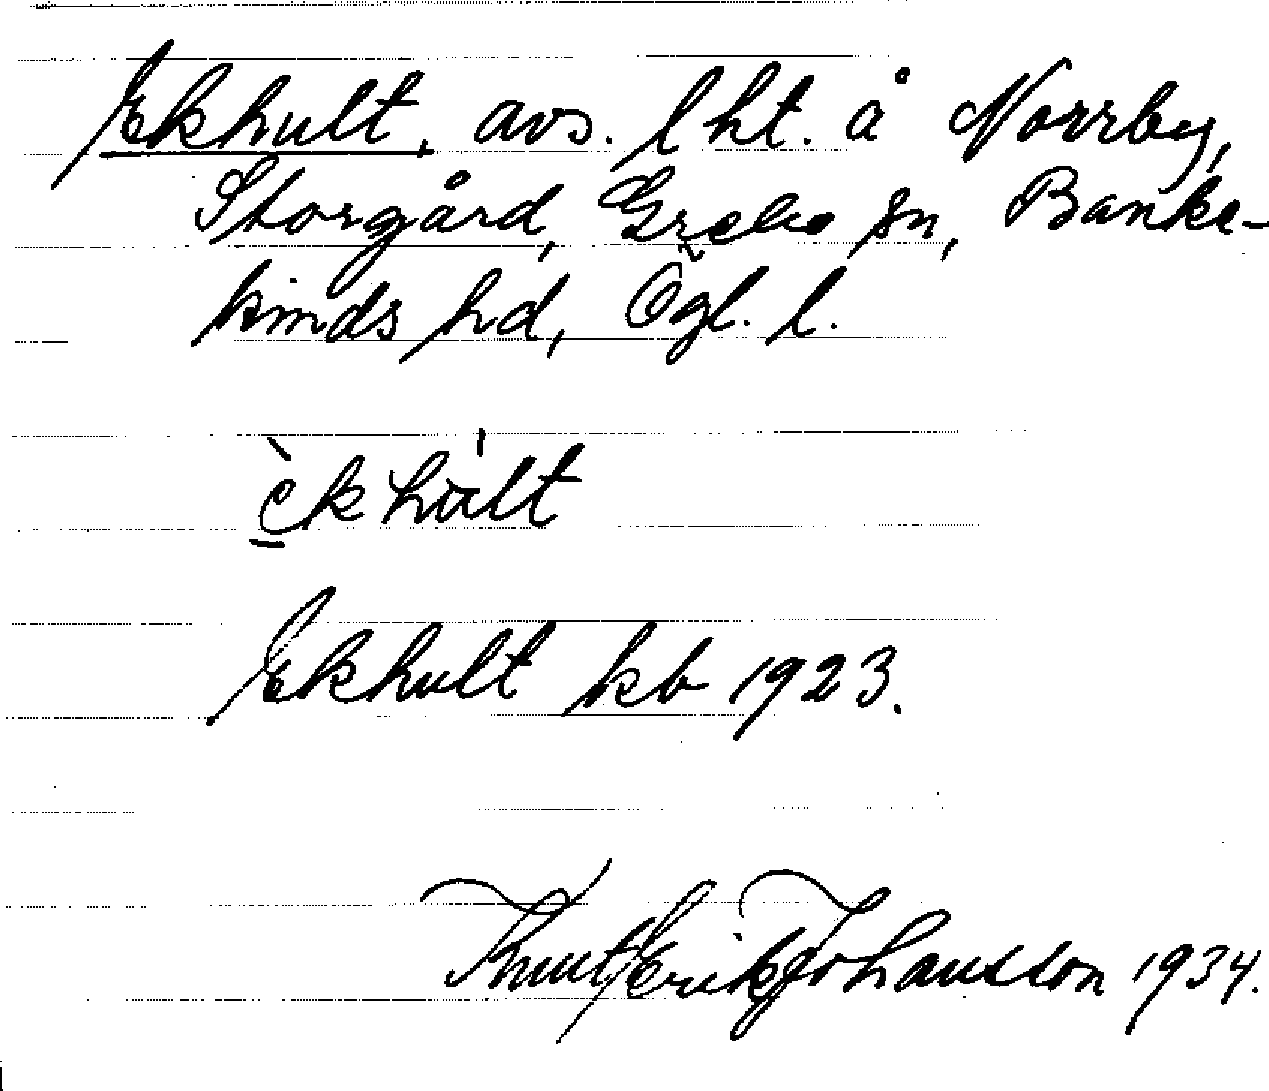 Ekhult, avs. lht. å Norrby,
Storgård, Grebo sn, Banke-
kinds hd, Ögl. l.
èkhu̍lt
Ekhult kb 1923.
Knut Erik Johansson 1934.